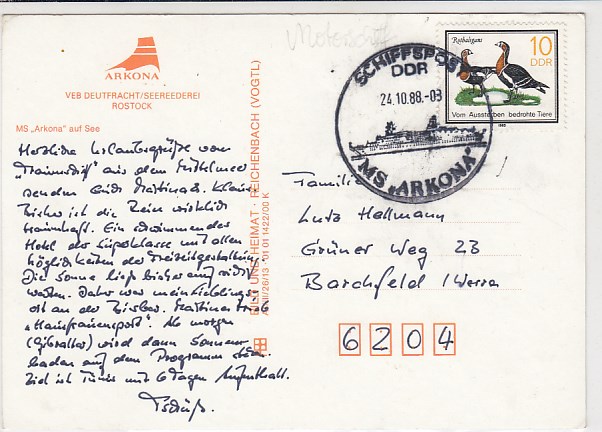 Motorschiff
ARKONA
VEB DEUTFRACHT/SEEREEDEREI
ROSTOCK
MS „Arkona" auf See
Herzliche Urlaubsgrüße vom
„Traumschiff" aus dem Mittelmeer
senden Euch Martina &
Bisher ist die Reise wirklich
traumhaft. Ein schwimmendes
Hotel der Superklasse mit allen
Möglichkeiten der Freizeitgestaltung.
Die Sonne ließ bisher auf sich
warten. Daher war mein Lieblings-
ort an der Bar. Martina trieb
„Hausfrauensport". Ab morgen
(Gibraltar) wird dann Sonnen-
baden auf dem Programm stehen.
Ziel ist Tunis mit 6 Tagen Aufenthalt.
Tschüß.
BILD UND HEIMAT · REICHENBACH (VOGTL)
01 01 1422/00 K
SCHIFFSPOST
DDR
24.10.88.-03
MS „ARKONA"
Rothalsgans
10
DDR
Vom Aussterben bedrohte Tiere
Familie
Lutz Hollmann
Grüner Weg 23
Barchfeld / Werra
6204